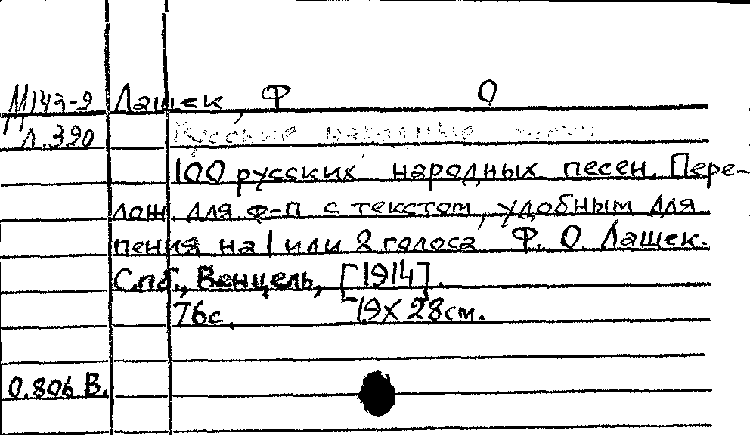 М143-9 Лашек, Ф О
Л.390 Русские народные песни
100 русских народных песен. Пере-
лож. для ф-п с текстом, удобным для
пения на 1 или 2 голоса Ф. О. Лашек.
Спб., Венцель, [1914].
76с. 19X28см.
0.806 В.